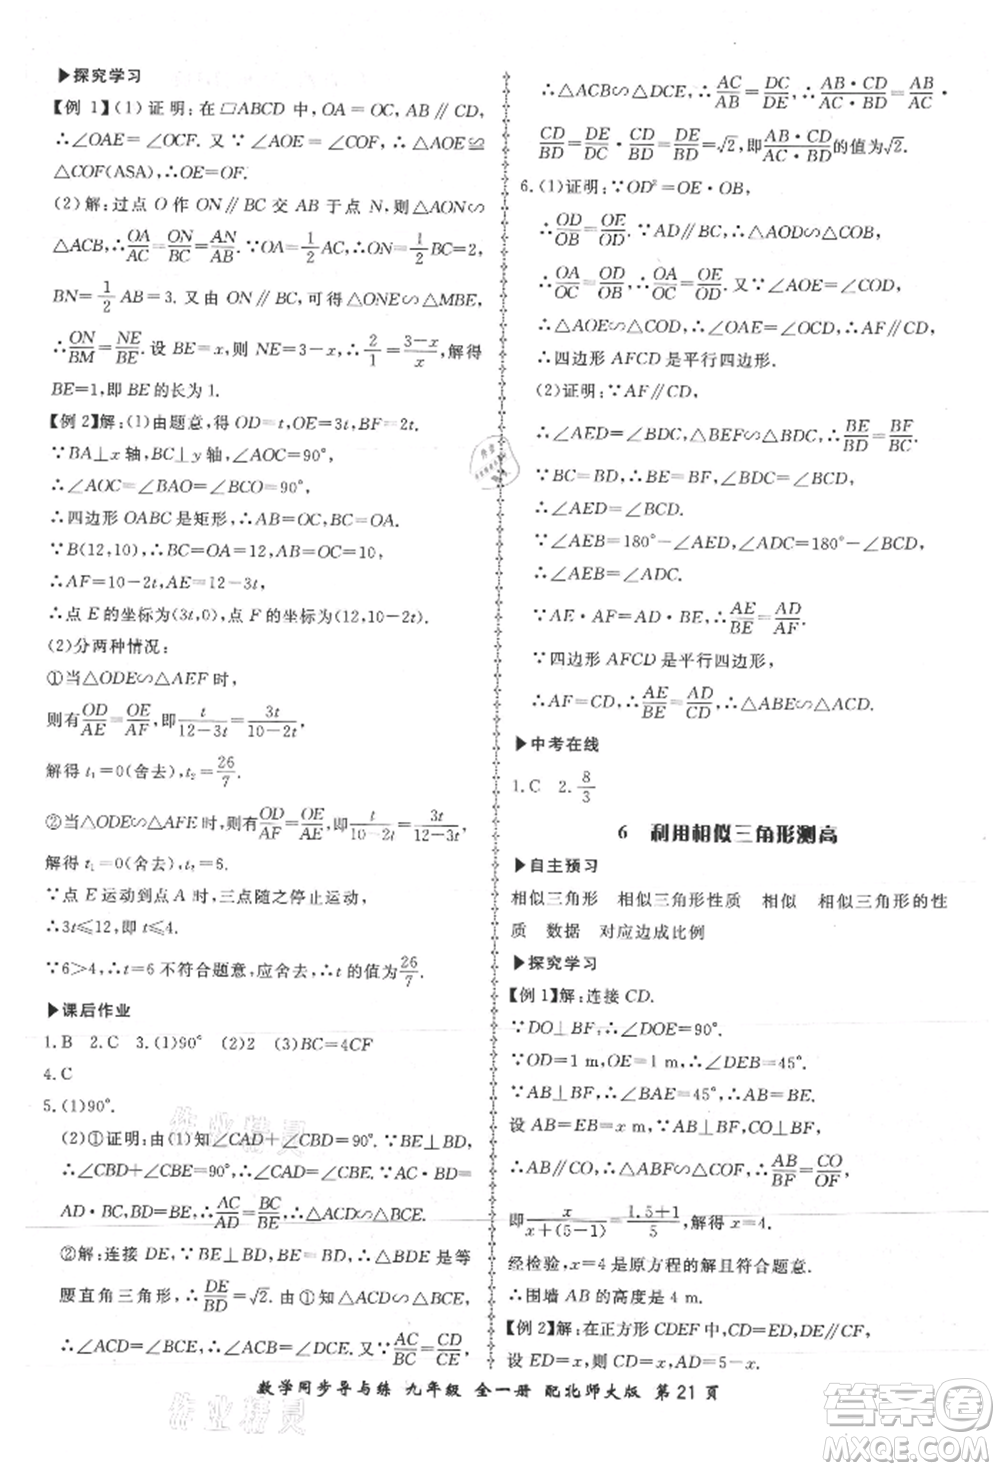 ▶探究学习
【例 1】(1)证明:在▱ABCD 中,OA=OC,AB∥CD,
∴∠OAE=∠OCF. 又∵∠AOE=∠COF,∴△AOE≌
△COF(ASA),∴OE=OF.
(2)解:过点 O 作 ON∥BC 交 AB 于点 N,则△AON∽
△ACB,∴OA/AC=ON/BC=AN/AB. ∵OA=1/2 AC,∴ON=1/2 BC=2,
BN=1/2 AB=3. 又由 ON∥BC,可得△ONE∽△MBE,
∴ON/BM=NE/BE. 设 BE=x,则 NE=3-x,∴2/1=(3-x)/x,解得
BE=1,即 BE 的长为 1.
【例 2】解:(1)由题意,得 OD=t,OE=3t,BF=2t.
∵BA⊥x 轴,BC⊥y 轴,∠AOC=90°,
∴∠AOC=∠BAO=∠BCO=90°,
∴四边形 OABC 是矩形,∴AB=OC,BC=OA.
∵B(12,10),∴BC=OA=12,AB=OC=10,
∴AF=10-2t,AE=12-3t,
∴点 E 的坐标为(3t,0),点 F 的坐标为(12,10-2t).
(2)分两种情况:
①当△ODE∽△AEF 时,
则有OD/AE=OE/AF,即t/(12-3t)=3t/(10-2t),
解得 t₁=0(舍去),t₂=26/7.
②当△ODE∽△AFE 时,则有OD/AF=OE/AE,即t/(10-2t)=3t/(12-3t),
解得 t₁=0(舍去),t₂=6.
∵点 E 运动到点 A 时,三点随之停止运动,
∴3t≤12,∴t≤4.
∵6>4,∴t=6 不符合题意,应舍去,∴t 的值为26/7.
▶课后作业
1. B 2. C 3. (1)90° (2)2 (3)BC=4CF
4. C
5. (1)90°.
(2)①证明:由(1)知∠CAD+∠CBD=90°. ∵BE⊥BD,
∴∠CBD+∠CBE=90°,∴∠CAD=∠CBE. 又∵AC·BE=
AD·BC,∴AC/AD=BC/BE,∴△ACD∽△BCE.
②解:连接 DE,∵BE⊥BD,BE=BD,∴△BDE 是等
腰直角三角形,∴DE/BD=√2. 由①知△ACD∽△BCE,
∴∠ACD=∠BCE,∴∠ACB=∠DCE. 又∵AC/BC=CD/CE,
∴△ABC∽△DCE,∴AC/AB=DC/DE,∴AB/AC=DE/CD,∴AB·CD/AC·
CD/BD=DE/BD=√2,即(AB·CD)/(AC·BD)的值为√2.
6. (1)证明:∵OD²=OE·OB,
∴OD/OB=OE/OD. ∵AD∥BC,∴△AOD∽△COB,
∴OA/OC=OD/OB,∴OA/OC=OE/OD. 又∵∠AOE=∠COD,
∴△AOE∽△COD,∴∠OAE=∠OCD,∴AF∥CD,
∴四边形 AFCD 是平行四边形.
(2)证明:∵AF∥CD,
∴∠AED=∠BDC,△BEF∽△BDC,∴BE/BD=BF/BC.
∵BC=BD,∴BE=BF,∠BDC=∠BCD,
∴∠AED=∠BCD.
∵∠AEB=180°-∠AED,∠ADC=180°-∠BCD,
∴∠AEB=∠ADC.
∵AE·AF=AD·BF,∴AE/BE=AD/AF.
∵四边形 AFCD 是平行四边形,
∴AF=CD,∴AE/BE=AD/CD,∴△ABE∽△ADC.
▶中考在线
1. C 2. 8/3
6 利用相似三角形测高
▶自主预习
相似三角形 相似三角形性质 相似 相似三角形的性
质 数据 对应边成比例
▶探究学习
【例 1】解:连接 CD.
∵DO⊥BF,∴∠DOE=90°.
∵OD=1 m,OE=1 m,∴∠DEB=45°.
∵AB⊥BF,∴∠BAE=45°,∴AB=BE.
设 AB=EB=x m,∵AB⊥BF,CO⊥BF,
∴AB∥CO,∴△ABF∽△COF,∴AB/BF=CO/OF,
即x/(x+(5-1))=(1.5+1)/5,解得 x=4.
经检验,x=4 是原方程的解且符合题意.
∴围墙 AB 的高度是 4 m.
【例 2】解:在正方形 CDEF 中,CD=ED,DE∥CF,
设 ED=x m,则 CD=x m,AD=(1.5-x)m.
数学同步导与练 九年级 全一册 配北师大版 第 21 页
作业精灵
作业精灵
答案圈
MXQE.COM